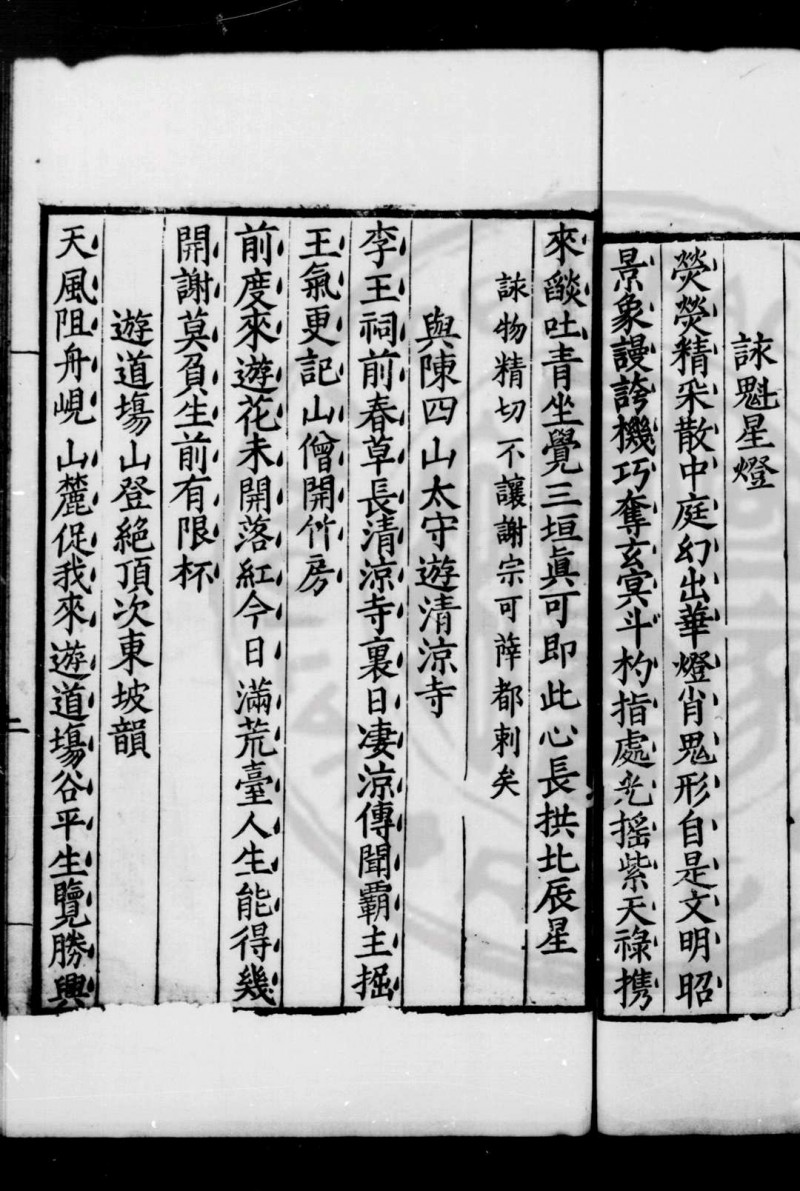 詠魁星燈
熒熒精采散中庭幻出華燈肖鬼形自是文明昭
景象謾誇機巧奪玄冥斗杓指處光搖紫天祿携
來燄吐青坐覺三垣眞可即此心長拱北辰星
詠物精切不讓謝宗可薩都剌矣
與陳四山太守遊清涼寺
李王祠前春草長清涼寺裏日凄涼傳聞霸主掘
王氣更記山僧開竹房
前度來遊花未開落紅今日滿荒臺人生能得幾
開謝莫負生前有限杯
遊道塲山登絕頂次東坡韻
天風阻舟峴山麓促我來遊道塲谷平生覽勝興
二